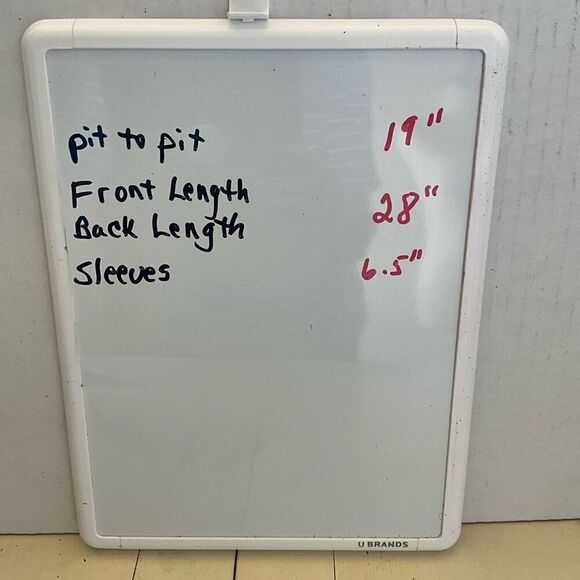 pit to pit 19"
Front Length
Back Length 28"
Sleeves 6.5"
U BRANDS